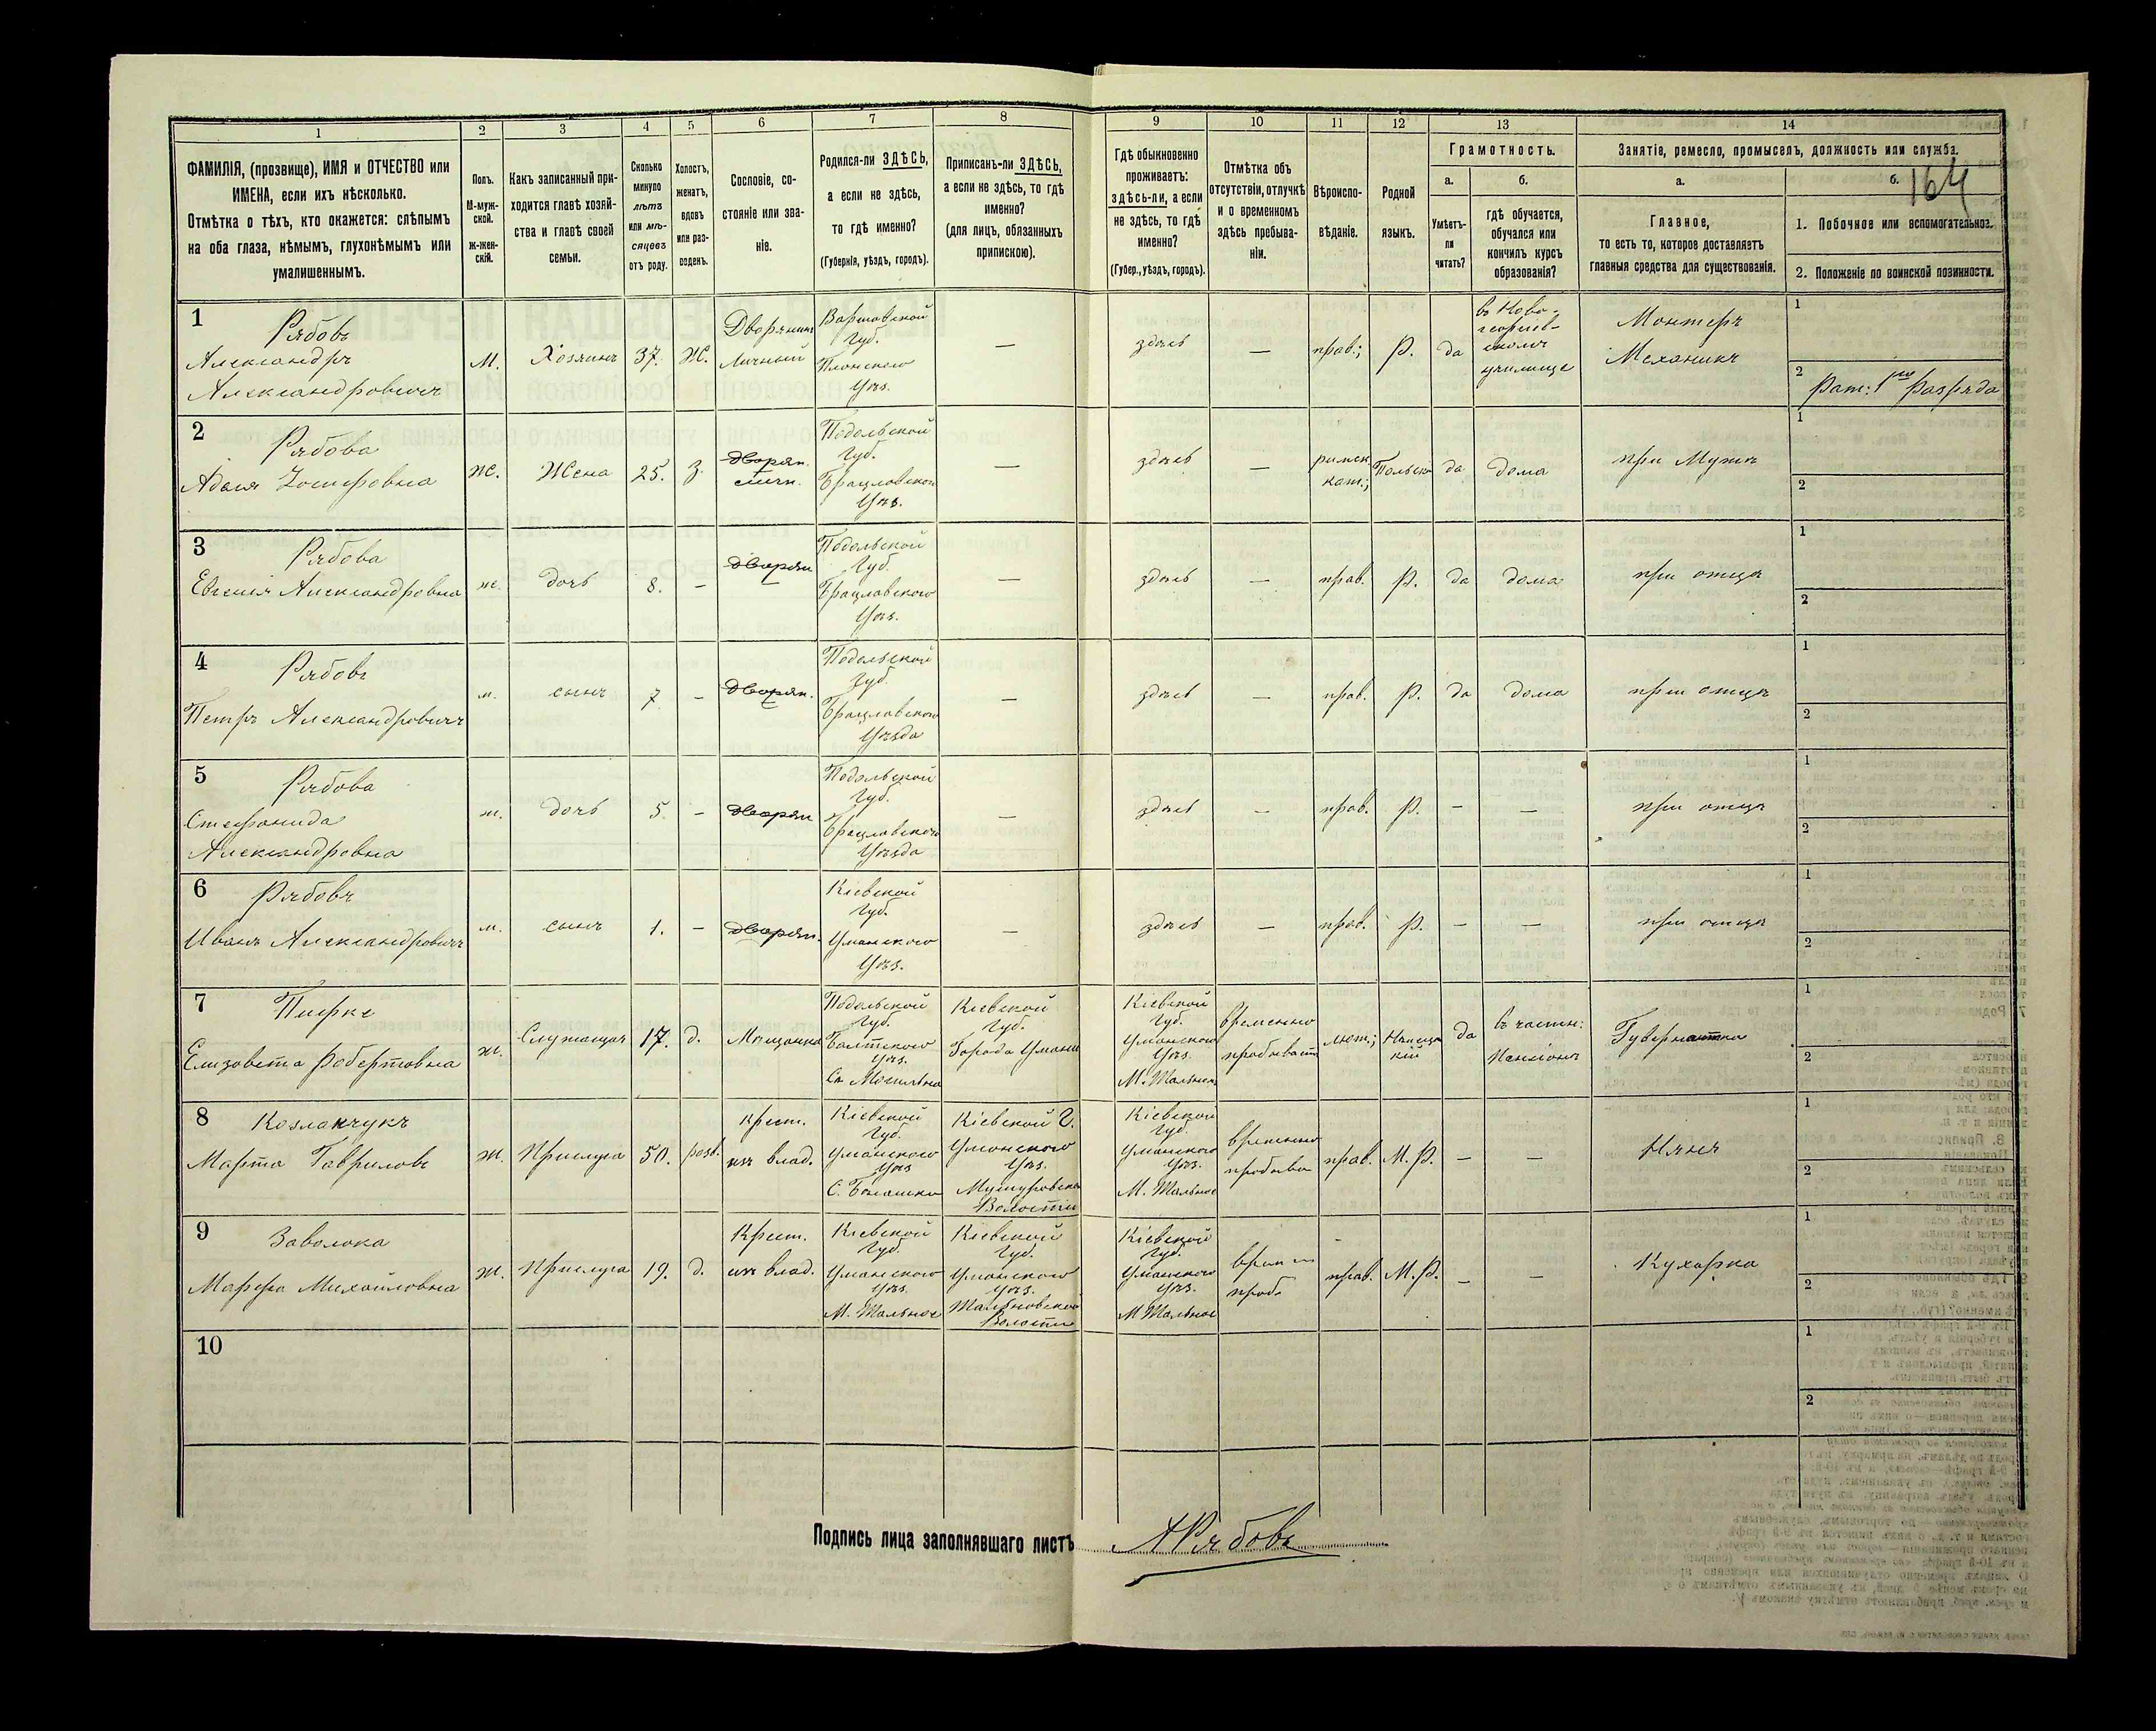 1 2 3 4 5 6 7 8 9 10 11 12 13 14
ФАМИЛІЯ, (прозвище), ИМЯ и ОТЧЕСТВО или
ИМЕНА, если ихъ нѣсколько.
Отмѣтка о тѣхъ, кто окажется: слѣпымъ
на оба глаза, нѣмымъ, глухонѣмымъ или
умалишеннымъ.
Полъ.
М-муж-
ской.
ж-жен-
скій.
Какъ записанный при-
ходится главѣ хозяй-
ства и главѣ своей
семьи.
Сколько
минуло
лѣтъ
или мѣ-
сяцевъ
отъ роду.
Холостъ,
женатъ,
вдовъ
или раз-
веденъ.
Сословіе, со-
стояніе или зва-
ніе.
Родился-ли ЗДѢСЬ,
а если не здѣсь,
то гдѣ именно?
(Губернія, уѣздъ, городъ).
Приписанъ-ли ЗДѢСЬ,
а если не здѣсь, то гдѣ
именно?
(для лицъ, обязанныхъ
припискою).
Гдѣ обыкновенно
проживаетъ:
здѣсь-ли, а если
не здѣсь, то гдѣ
именно?
(Губер., уѣздъ, городъ).
Отмѣтка объ
отсутствіи, отлучкѣ
и о временномъ
здѣсь пребыва-
ніи.
Вѣроиспо-
вѣданіе.
Родной
языкъ.
Грамотность.
а.
Умѣетъ-
ли
читать?
б.
гдѣ обучается,
обучался или
кончилъ курсъ
образованія?
Занятіе, ремесло, промыселъ, должность или служба.
а.
Главное,
то есть то, которое доставляетъ
главныя средства для существованія.
б.
164
1. Побочное или вспомогательное.
2. Положеніе по воинской повинности.
1
Рябовъ
Александръ
Александровичъ
М.
Хозяинъ
37.
Ж.
Дворянинъ
Личный
Варшавской
Губ.
Плонского
Уѣз.
—
здѣсь
—
прав.;
Р.
да
въ Ново-
георгіев-
училище
Монтеръ
Механикъ
1
2
Рат: 1го Разряда
2
Рябова
Іосифовна
Ж.
Жена
25.
З.
дворян.
Подольской
Губ.
Брацлавского
Уѣз.
—
здѣсь
—
римск.
кат.;
Польск
да
дома
при Мужѣ
1
2
3
Рябова
Евгенія Александровна
ж.
дочь
8.
–
дворян
Подольской
Губ.
Брацлавского
Уѣз.
—
здѣсь
—
прав.
Р.
да
дома
при отцѣ
1
2
4
Рябовъ
Петръ Александровичъ
м.
сынъ
7
–
дворян.
Подольской
Губ.
Брацлавского
Уѣзда
—
здѣсь
—
прав.
Р.
да
дома
при отцѣ
1
2
5
Рябова
Стефанида
Александровна
ж.
дочь
5.
–
дворян
Подольской
Губ.
Брацлавского
Уѣзда
—
здѣсь
—
прав.
Р.
–
—
при отцѣ
1
2
6
Рябовъ
Иванъ Александровичъ
м.
сынъ
1.
–
дворян.
Кіевской
Губ.
Уманского
Уѣз.
—
здѣсь
—
прав.
Р.
–
—
при отцѣ
1
2
7
Елизовета Робертовна
ж.
Служащая
17.
д.
Мѣщанка
Подольской
Губ.
Балтского
Уѣз.
Кіевской
Губ.
Города Умани
Кіевской
Губ.
Уманского
Уѣз.
временно
пребывает
лют.;
Нѣмец
кій
да
въ частн.
Пансіонѣ
Гувернантка
1
2
8
Козлакчукъ
Марта Гаврилова
Ж.
Прислуга
50.
разв.
крест.
изъ влад.
Кіевской
Губ.
Уманского
Уѣз
Кіевской Г.
Уманского
Уѣз.
Волости
Кіевской
Губ.
Уманского
Уѣз.
М. Тальное
временно
прав.
М.Р.
–
—
Няня
1
2
9
Заволока
Марфа Михайловна
Ж.
Прислуга
19.
д.
Крест.
изъ влад.
Кіевской
Губ.
Уманского
Уѣз.
М. Тальное
Кіевской
Губ.
Уманского
Уѣз.
Тальновской
Волости
Кіевской
Губ.
Уманского
Уѣз.
М Тальное
времен
преб.
прав.
М.Р.
–
—
Кухарка
1
2
10
1
2
Подпись лица заполнявшаго листъ
АРябовъ